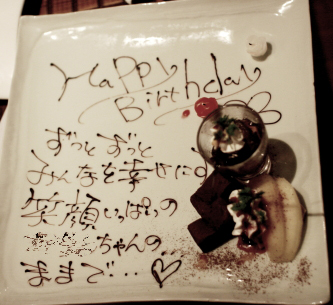 Happy
Birthday
ずっと ずっと
みんなを幸せにする
笑顔いっぱいの
ちゃんの
ままで...♡